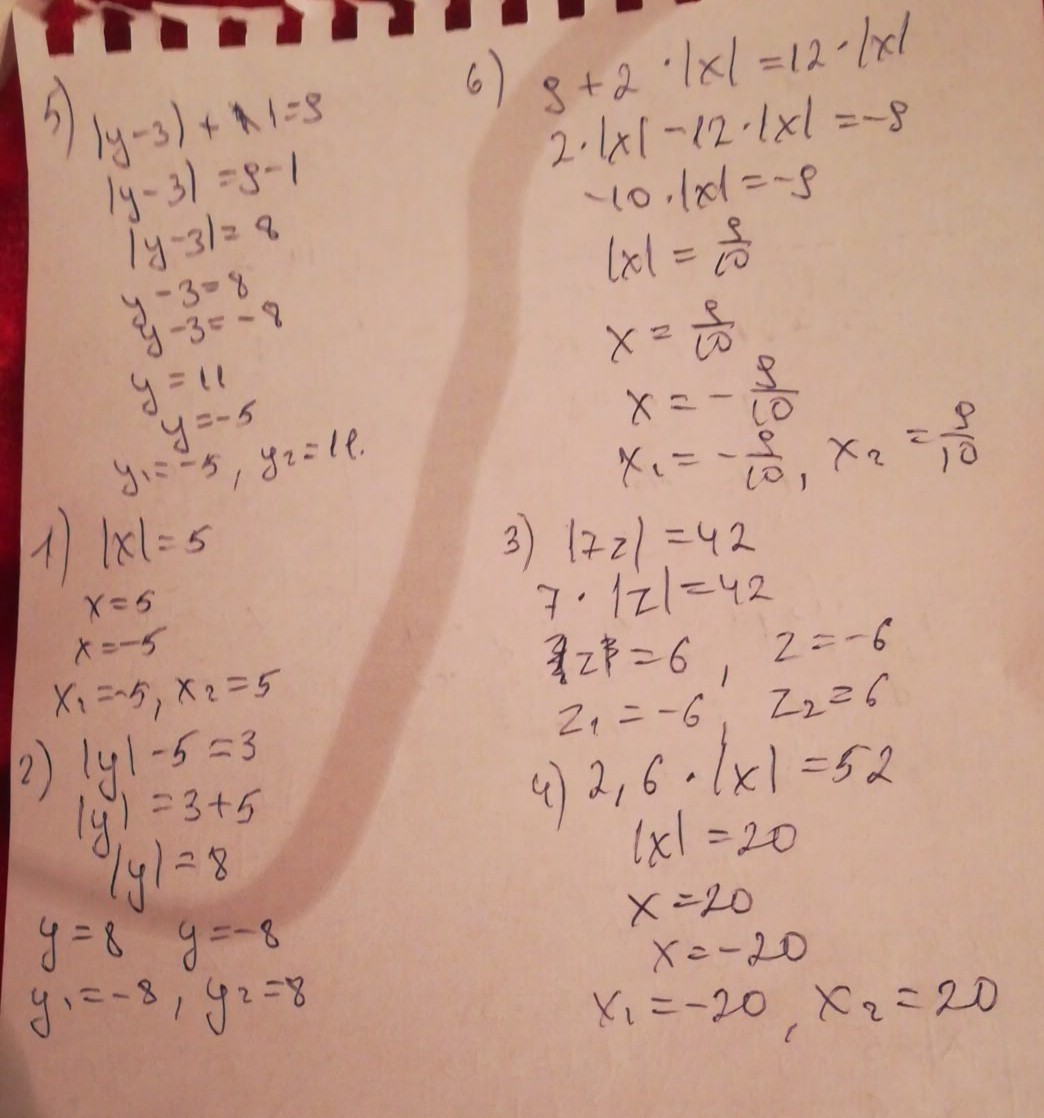 5) |y-3| + 1 = 9
|y-3| = 9-1
|y-3| = 8
y-3=8
y-3=-8
y=11
y=-5
y₁=-5, y₂=11.
1) |x|=5
x=5
x=-5
x₁=-5, x₂=5
2) |y|-5=3
|y|=3+5
|y|=8
y=8 y=-8
y₁=-8, y₂=8
6) 9+2·|x|=12·|x|
2·|x|-12·|x|=-9
-10·|x|=-9
|x|=9/10
x=9/10
x=-9/10
x₁=-9/10, x₂=9/10
3) |7z|=42
7·|z|=42
z=6, z=-6
z₁=-6, z₂=6
4) 2,6·|x|=52
|x|=20
x=20
x=-20
x₁=-20, x₂=20